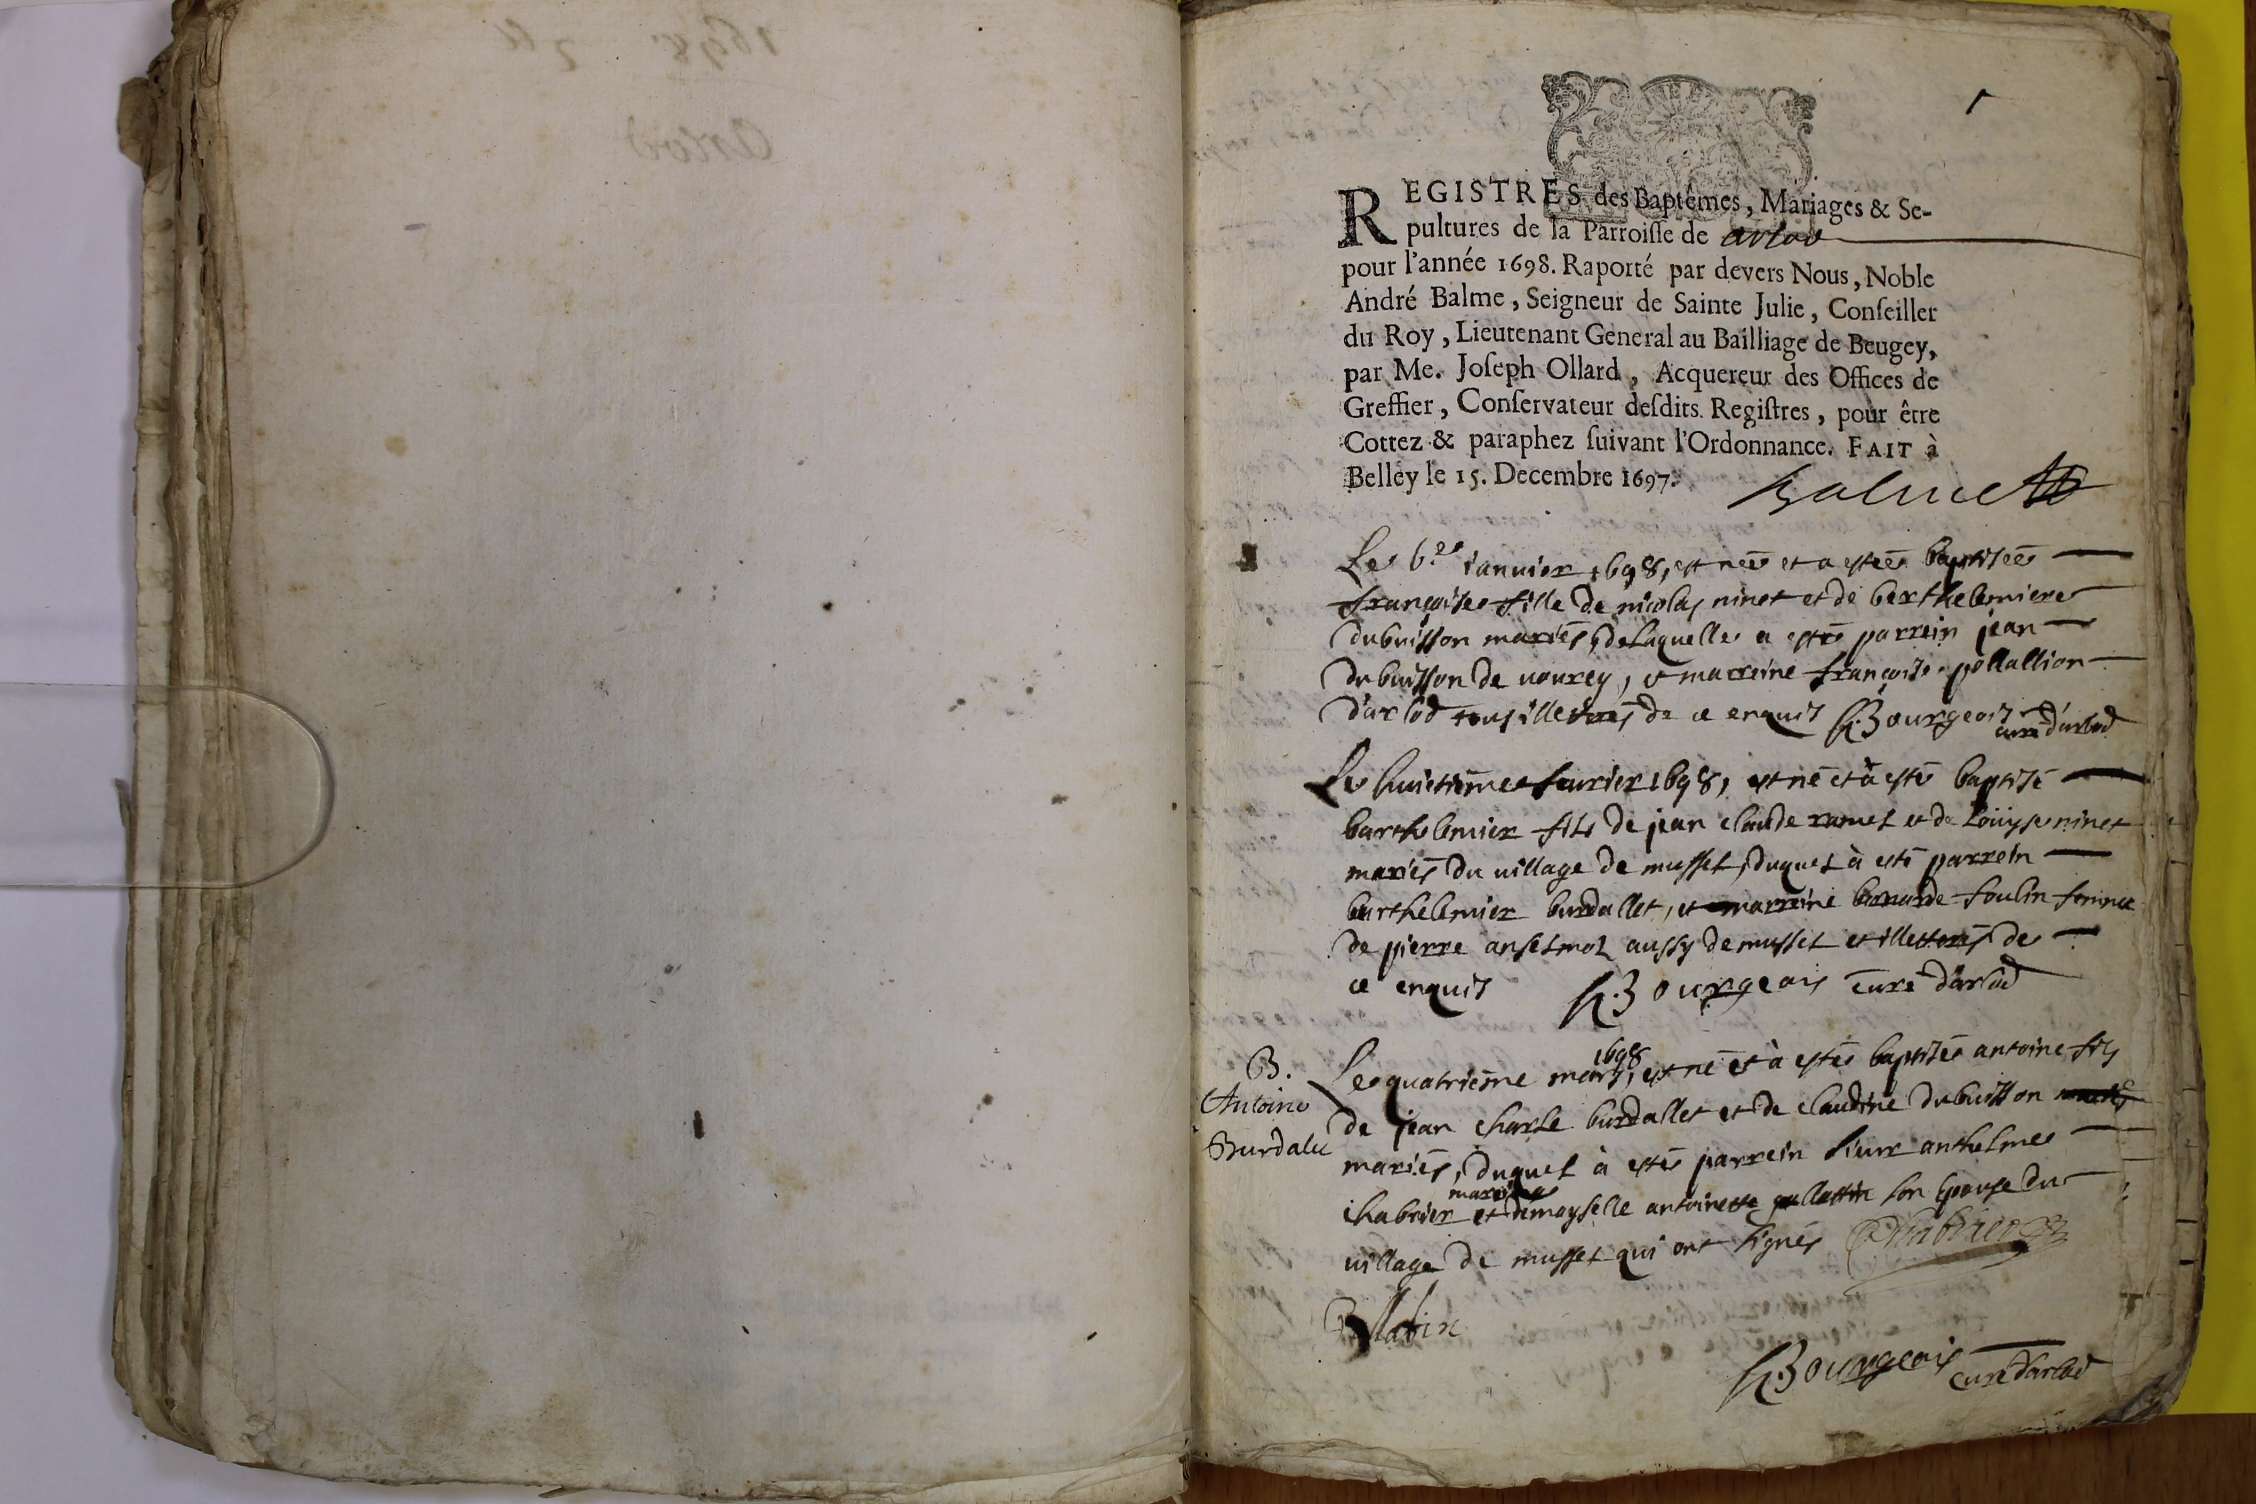 1
REGISTRES des Baptêmes, Mariages & Se-
pultures de la Parroisse de arlod
pour l'année 1698. Raporté par devers Nous, Noble
André Balme, Seigneur de Sainte Julie, Conseiller
du Roy, Lieutenant General au Bailliage de Beugey,
par Me. Joseph Ollard, Acquereur des Offices de
Greffier, Conservateur desdits Registres, pour être
Cottez & paraphez suivant l'Ordonnance. FAIT à
Belley le 15. Decembre 1697.
Balme
Le 6.e ianvier 1698, est née et a estée baptisée
françoise fille de nicolas ninet et de berthelemiere
dubuisson mariés, de laquelle a esté parrein jean
dubuisson de vourey, et marreine françoise pellallion
d'arlod tous illettrés de ce enquis Bourgeois
curé d'arlod
Le huictième feurier 1698, est né et à esté baptisé
barthelemier fils de jean claude ramel et de Loüyse ninet
mariés du village de mussel, duquel à esté parrein
barthelemier burdallet, et marreine bernarde foulin femme
de pierre anselmoz aussy de mussel et illettrés de
ce enquis Bourgeois curé d'arlod
B.
Antoine
Burdalet
1698
Le quatrième mars, est né et à estée baptisée antoine fils
de jean charle burdallet et de claudine dubuisson
mariés, duquel à estée parrein sieur anthelme
marreine
chabrier et demoyselle antoinette son épouse du
village de mussel qui ont signés Chabrier
Bourgeois
curé d'arlod